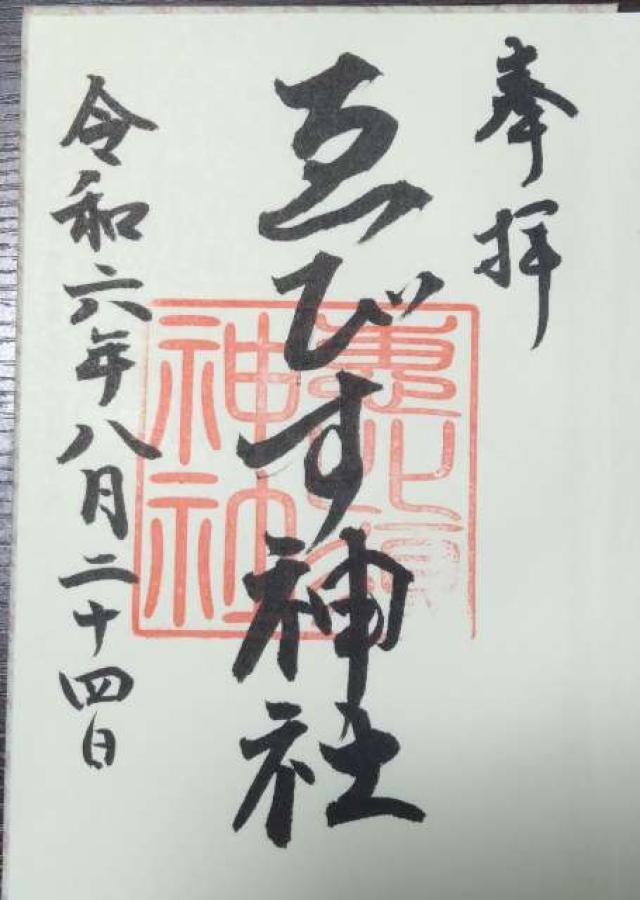 奉拝
ゑびす神社
令和六年八月二十四日
神社